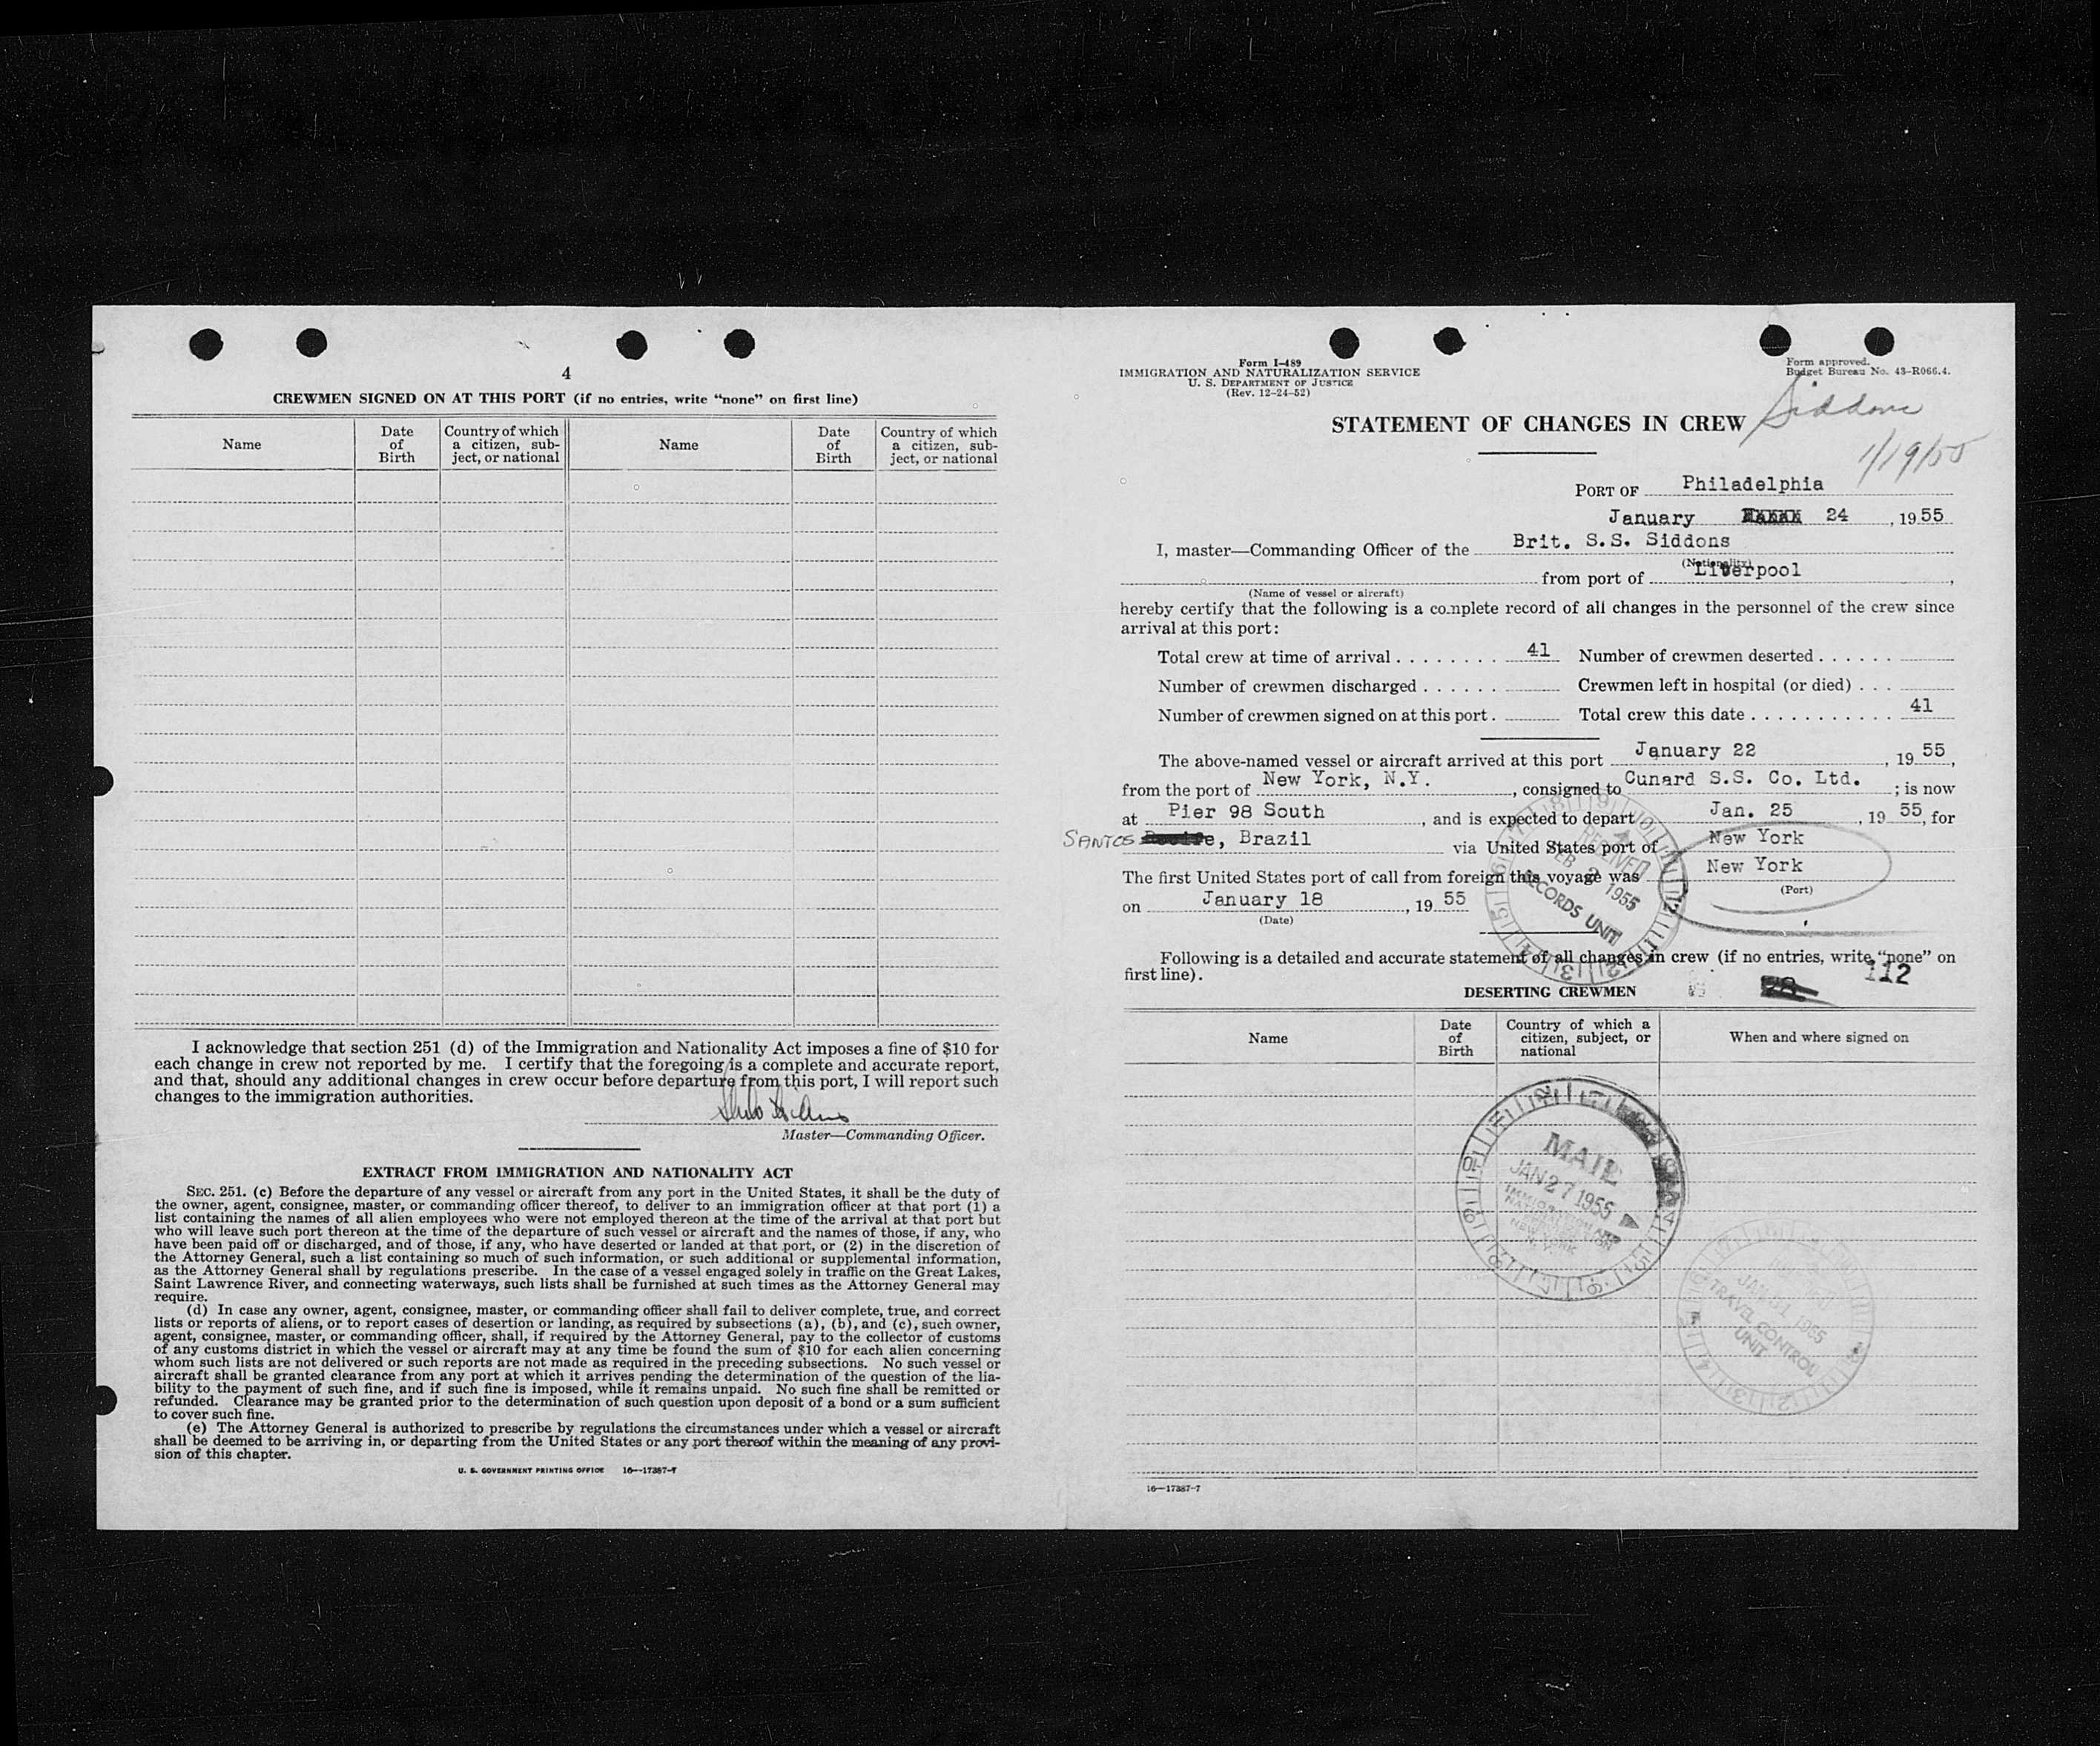 4
CREWMEN SIGNED ON AT THIS PORT (if no entries, write "none" on first line)
Name
Date of Birth
Country of which a citizen, subject, or national
Name
Date of Birth
Country of which a citizen, subject, or national
I acknowledge that section 251 (d) of the Immigration and Nationality Act imposes a fine of $10 for
each change in crew not reported by me. I certify that the foregoing is a complete and accurate report,
and that, should any additional changes in crew occur before departure from this port, I will report such
changes to the immigration authorities.
Master—Commanding Officer.
EXTRACT FROM IMMIGRATION AND NATIONALITY ACT
SEC. 251. (c) Before the departure of any vessel or aircraft from any port in the United States, it shall be the duty of
the owner, agent, consignee, master, or commanding officer thereof, to deliver to an immigration officer at that port (1) a
list containing the names of all alien employees who were not employed thereon at the time of the arrival at that port but
who will leave such port thereon at the time of the departure of such vessel or aircraft and the names of those, if any, who
have been paid off or discharged, and of those, if any, who have deserted or landed at that port, or (2) in the discretion of
the Attorney General, such a list containing so much of such information, or such additional or supplemental information,
as the Attorney General shall by regulations prescribe. In the case of a vessel engaged solely in traffic on the Great Lakes,
Saint Lawrence River, and connecting waterways, such lists shall be furnished at such times as the Attorney General may
require.
(d) In case any owner, agent, consignee, master, or commanding officer shall fail to deliver complete, true, and correct
lists or reports of aliens, or to report cases of desertion or landing, as required by subsections (a), (b), and (c), such owner,
agent, consignee, master, or commanding officer, shall, if required by the Attorney General, pay to the collector of customs
of any customs district in which the vessel or aircraft may at any time be found the sum of $10 for each alien concerning
whom such lists are not delivered or such reports are not made as required in the preceding subsections. No such vessel or
aircraft shall be granted clearance from any port at which it arrives pending the determination of the question of the lia-
bility to the payment of such fine, and if such fine is imposed, while it remains unpaid. No such fine shall be remitted or
refunded. Clearance may be granted prior to the determination of such question upon deposit of a bond or a sum sufficient
to cover such fine.
(e) The Attorney General is authorized to prescribe by regulations the circumstances under which a vessel or aircraft
shall be deemed to be arriving in, or departing from the United States or any port thereof within the meaning of any provi-
sion of this chapter.
U. S. GOVERNMENT PRINTING OFFICE 16—17387-7
Form I-489
IMMIGRATION AND NATURALIZATION SERVICE
U. S. DEPARTMENT OF JUSTICE
(Rev. 12-24-52)
Form approved.
Budget Bureau No. 43-R066.4.
STATEMENT OF CHANGES IN CREW
Siddons
1/19/55
PORT OF Philadelphia
January 24, 1955
I, master—Commanding Officer of the Brit. S.S. Siddons
(Nationality)
from port of Liverpool,
(Name of vessel or aircraft)
hereby certify that the following is a complete record of all changes in the personnel of the crew since
arrival at this port:
Total crew at time of arrival . . . . . . . . 41 Number of crewmen deserted . . . . . .
Number of crewmen discharged . . . . . . Crewmen left in hospital (or died) . . .
Number of crewmen signed on at this port . Total crew this date . . . . . . . . . . . 41
The above-named vessel or aircraft arrived at this port January 22, 1955,
from the port of New York, N.Y., consigned to Cunard S.S. Co. Ltd.; is now
at Pier 98 South, and is expected to depart Jan. 25, 1955, for
SANTOS, Brazil via United States port of New York
The first United States port of call from foreign this voyage was New York
(Port)
on January 18, 1955
(Date)
RECEIVED
FEB 2 1955
RECORDS UNIT
Following is a detailed and accurate statement of all changes in crew (if no entries, write "none" on
first line).
112
28
DESERTING CREWMEN
Name
Date of Birth
Country of which a citizen, subject, or national
When and where signed on
MAIL
JAN 27 1955
IMMIGRATION AND
NEW YORK
N. Y.
JAN 31 1955
TRAVEL CONTROL
UNIT
16—17387-7